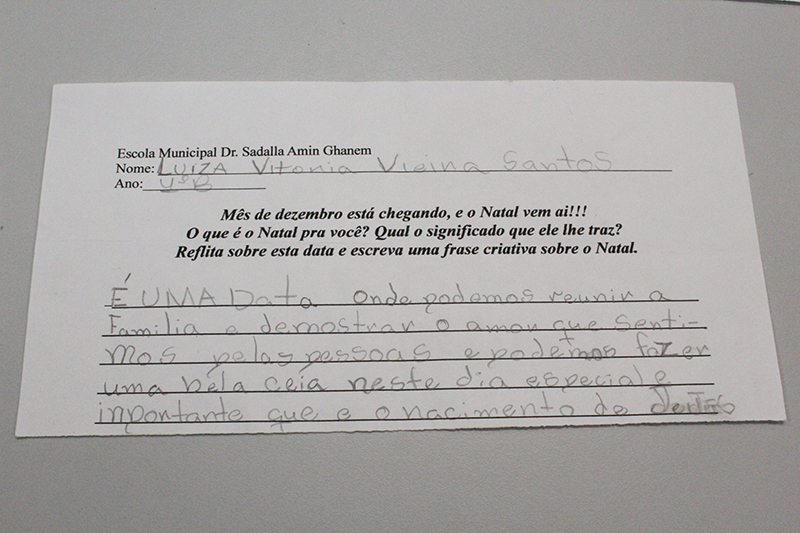 Escola Municipal Dr. Sadalla Amin Ghanem
Nome: LUIZA Vitoria Vieira Santos
Ano: 4ºB
Mês de dezembro está chegando, e o Natal vem ai!!!
O que é o Natal pra você? Qual o significado que ele lhe traz?
Reflita sobre esta data e escreva uma frase criativa sobre o Natal.
É UMA Data onde podemos reunir a
Familia e demostrar o amor que senti-
mos pelas pessoas e podemos fazer
uma bela ceia neste dia especial e
inportante que e o nacimento de